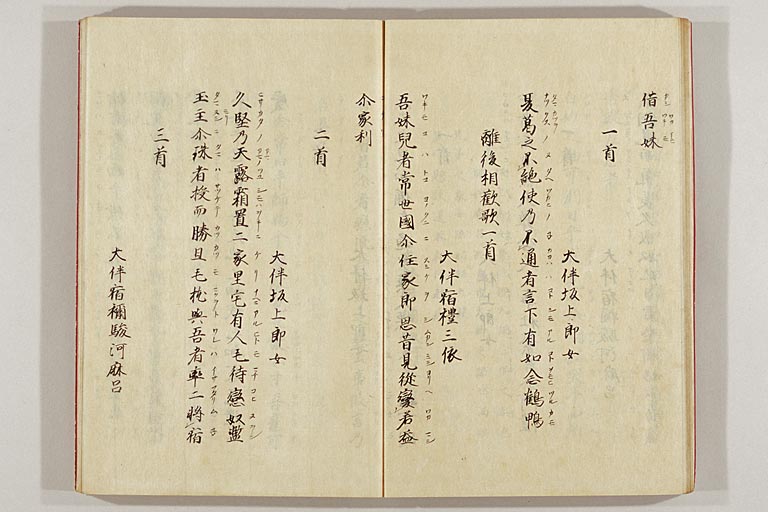 借吾妹
一首
大伴坂上郎女
夏葛之不絶使乃不通者言下有如念鶴鴨
離後相歡歌一首
大伴宿禮三依
吾妹兒者常世國尓住家郎思昔見從變若益
尓家利
二首
大伴坂上郎女
久堅乃天露霜置二家里宅有人毛待戀奴濫
玉主尓珠者授而勝且毛枕與吾者率二將宿
三首
大伴宿禰駿河麻呂